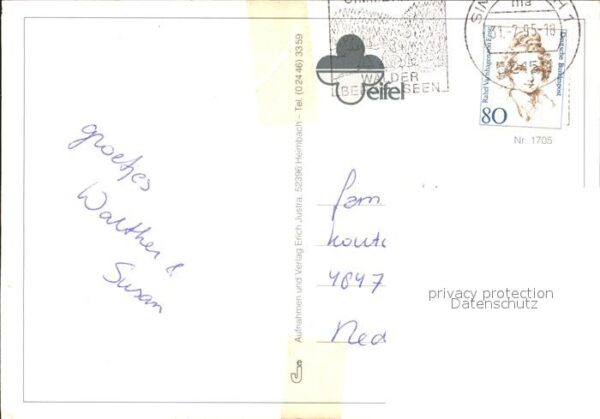 groetjes
Walther &
Susan
Aufnahmen und Verlag Erich Justra, 52396 Heimbach - Tel. (0 24 46) 33 59
WÄLDER
SEEN
eifel
Rahel Varnhagen von Ense
Deutsche Bundespost
80
Nr. 1705
fam
4847
Ned
privacy protection
Datenschutz